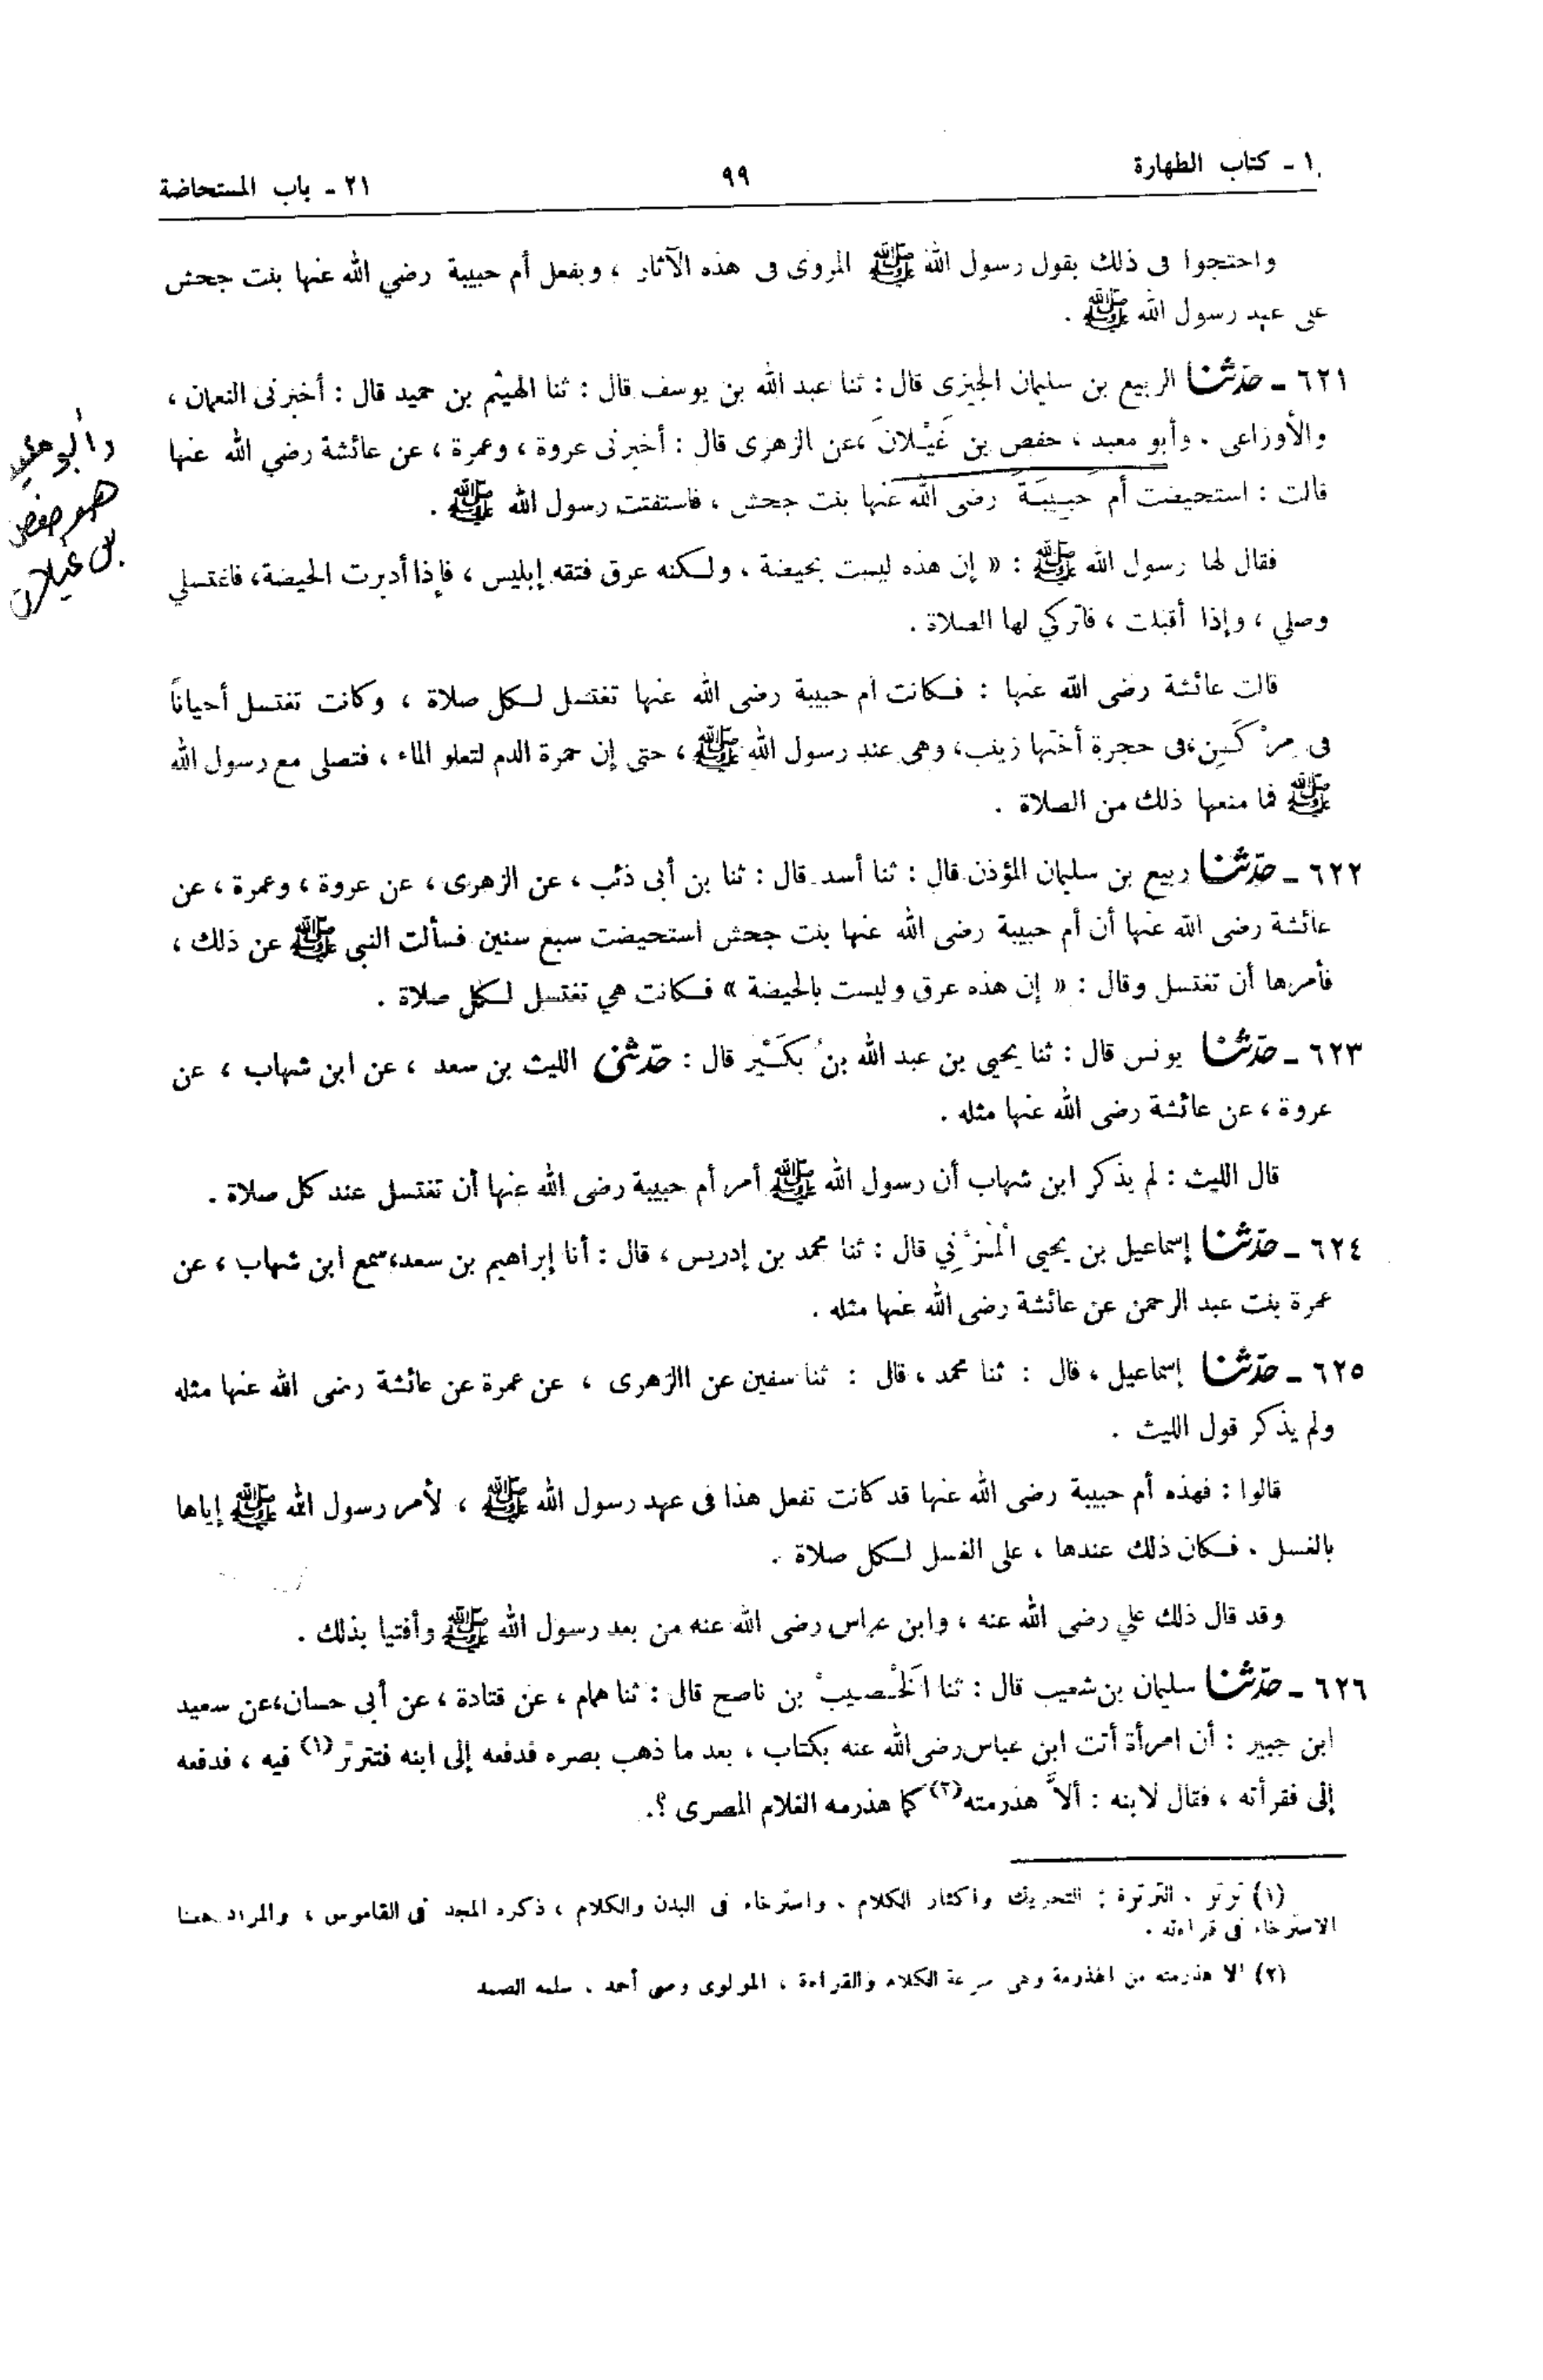 ١ - كتاب الطهارة
٩٩
٢١ - باب المستحاضة
واحتجوا فى ذلك بقول رسول الله ﷺ المروى فى هذه الآثار ، وبفعل أم حبيبة رضي الله عنها بنت جحش
على عهد رسول الله ﷺ .
٦٢١ - حدّثنا الربيع بن سليمان الجيزى قال : ثنا عبد الله بن يوسف قال : ثنا الهيثم بن حميد قال : أخبرنى النعمان ،
والأوزاعى . وأبو معبد ، حفص بن غَيْلانَ ،عن الزهرى قال : أخبرنى عروة ، وعمرة ، عن عائشة رضي الله عنها
قالت : استحيضت أم حَبِيبَةَ رضى الله عنها بنت جحش ، فاستفتت رسول الله ﷺ .
فقال لها رسول الله ﷺ : « إن هذه ليست بحيضة ، ولكنه عرق فتقه إبليس ، فإذا أدبرت الحيضة، فاغتسلي
وصلي ، وإذا أقبلت ، فاتركي لها الصلاة .
قالت عائشة رضى الله عنها : فكانت أم حبيبة رضى الله عنها تغتسل لكل صلاة ، وكانت تغتسل أحيانًا
فى مِرْكَنٍ،فى حجرة أختها زينب، وهى عند رسول الله ﷺ ، حتى إن حمرة الدم لتعلو الماء ، فتصلى مع رسول الله
ﷺ فما منعها ذلك من الصلاة .
٦٢٢ - حدّثنا ربيع بن سليمان المؤذن قال : ثنا أسد قال : ثنا بن أبى ذئب ، عن الزهرى ، عن عروة ، وعمرة ، عن
عائشة رضى الله عنها أن أم حبيبة رضى الله عنها بنت جحش استحيضت سبع سنين فسألت النبى ﷺ عن ذلك ،
فأمرها أن تغتسل وقال : « إن هذه عرق وليست بالحيضة » فكانت هي تغتسل لكل صلاة .
٦٢٣ - حدّثنا يونس قال : ثنا يحيى بن عبد الله بن بُكَيْر قال : حدّثنى الليث بن سعد ، عن ابن شهاب ، عن
عروة ، عن عائشة رضى الله عنها مثله .
قال الليث : لم يذكر ابن شهاب أن رسول الله ﷺ أمر أم حبيبة رضى الله عنها أن تغتسل عند كل صلاة .
٦٢٤ - حدّثنا إسماعيل بن يحيى الْمُزَنِي قال : ثنا محمد بن إدريس ، قال : أنا إبراهيم بن سعد،سمع ابن شهاب ، عن
عمرة بنت عبد الرحمن عن عائشة رضى الله عنها مثله .
٦٢٥ - حدّثنا إسماعيل ، قال : ثنا محمد ، قال : ثنا سفين عن االزهرى ، عن عمرة عن عائشة رضى الله عنها مثله
ولم يذكر قول الليث .
قالوا : فهذه أم حبيبة رضى الله عنها قد كانت تفعل هذا فى عهد رسول الله ﷺ ، لأمر رسول الله ﷺ إياها
بالغسل . فكان ذلك عندها ، على الغسل لكل صلاة .
وقد قال ذلك علي رضى الله عنه ، وابن عباس رضى الله عنه من بعد رسول الله ﷺ وأفتيا بذلك .
٦٢٦ - حدّثنا سليمان بن شعيب قال : ثنا الْخَصيبْ بن ناصح قال : ثنا همام ، عن قتادة ، عن أبي حسان،عن سعيد
ابن جبير : أن امرأة أتت ابن عباس رضى الله عنه بكتاب ، بعد ما ذهب بصره فدفعه إلى ابنه فتترتر (١) فيه ، فدفعه
إلى فقرأته ، فقال لابنه : ألاَّ هذرمته (٢) كما هذرمه الغلام المصرى ؟.
(١) تَرتَر . الترترة : التحريك واكثار الكلام . واسترخاء فى البدن والكلام ، ذكره المجد فى القاموس ، والمراد ههنا
الاسترخاء فى قراءته .
(٢) ألا هذرمته من الهذرمة وهى سرعة الكلام والقراءة ، المولوى وصى أحمد . سلمه الصمد
وأبو معيد
هو حفص
بن غيلان